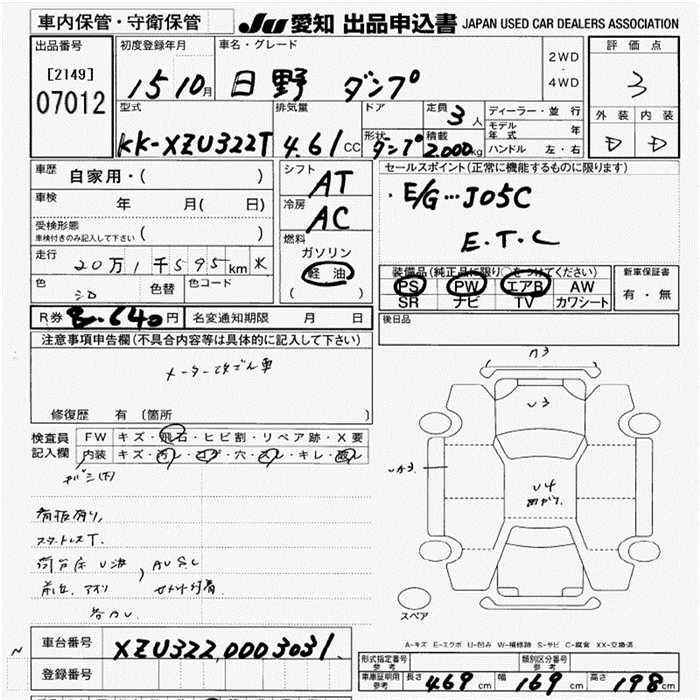 車内保管・守衛保管
JU 愛知 出品申込書 JAPAN USED CAR DEALERS ASSOCIATION
出品番号
[2149]
07012
初度登録年月
15 10月
車名・グレード
日野 ダンプ
2WD
・
4WD
評価点
3
外装 内装
D D
型式
KK-XZU322T
排気量
4.61 CC
ドア
形状
ダンプ
定員
3人
積載
2.000kg
ディーラー・並行
モデル年式 年
ハンドル 左・右
車歴
自家用・( )
車検
年 月( 日)
受検形態
車検付きのみ記入して下さい ( )
走行
20万1千595km
色
シロ
色替
色コード
シフト
AT
冷房
AC
燃料
ガソリン
軽油
( )
セールスポイント(正常に機能するものに限ります)
・E/G…J05C
E.T.C
装備品(純正品に限り○をつけてください)
PS PW エアB AW
SR ナビ TV カワシート
新車保証書
有・無
R券 8.640円
名変通知期限 月 日
後日品
注意事項申告欄(不具合内容等は具体的に記入して下さい)
メーター改ざん車
修復歴 有 〔箇所 〕
検査員
記入欄
FW キズ・飛石・ヒビ割・リペア跡・X要
内装 キズ・汚レ・コゲ・穴・スレ・キレ・
看板有り,
スタートレスT.
A3
U3
UA3
U4
スペア
A-キズ E-エクボ U-凹み W-補修跡 S-サビ C-腐食 XX-交換済
車台番号
XZU322.0003031.
登録番号
形式指定番号
参考
類別区分番号
参考
車庫証明用
参考
長さ 469cm 幅 169cm 高さ 198cm